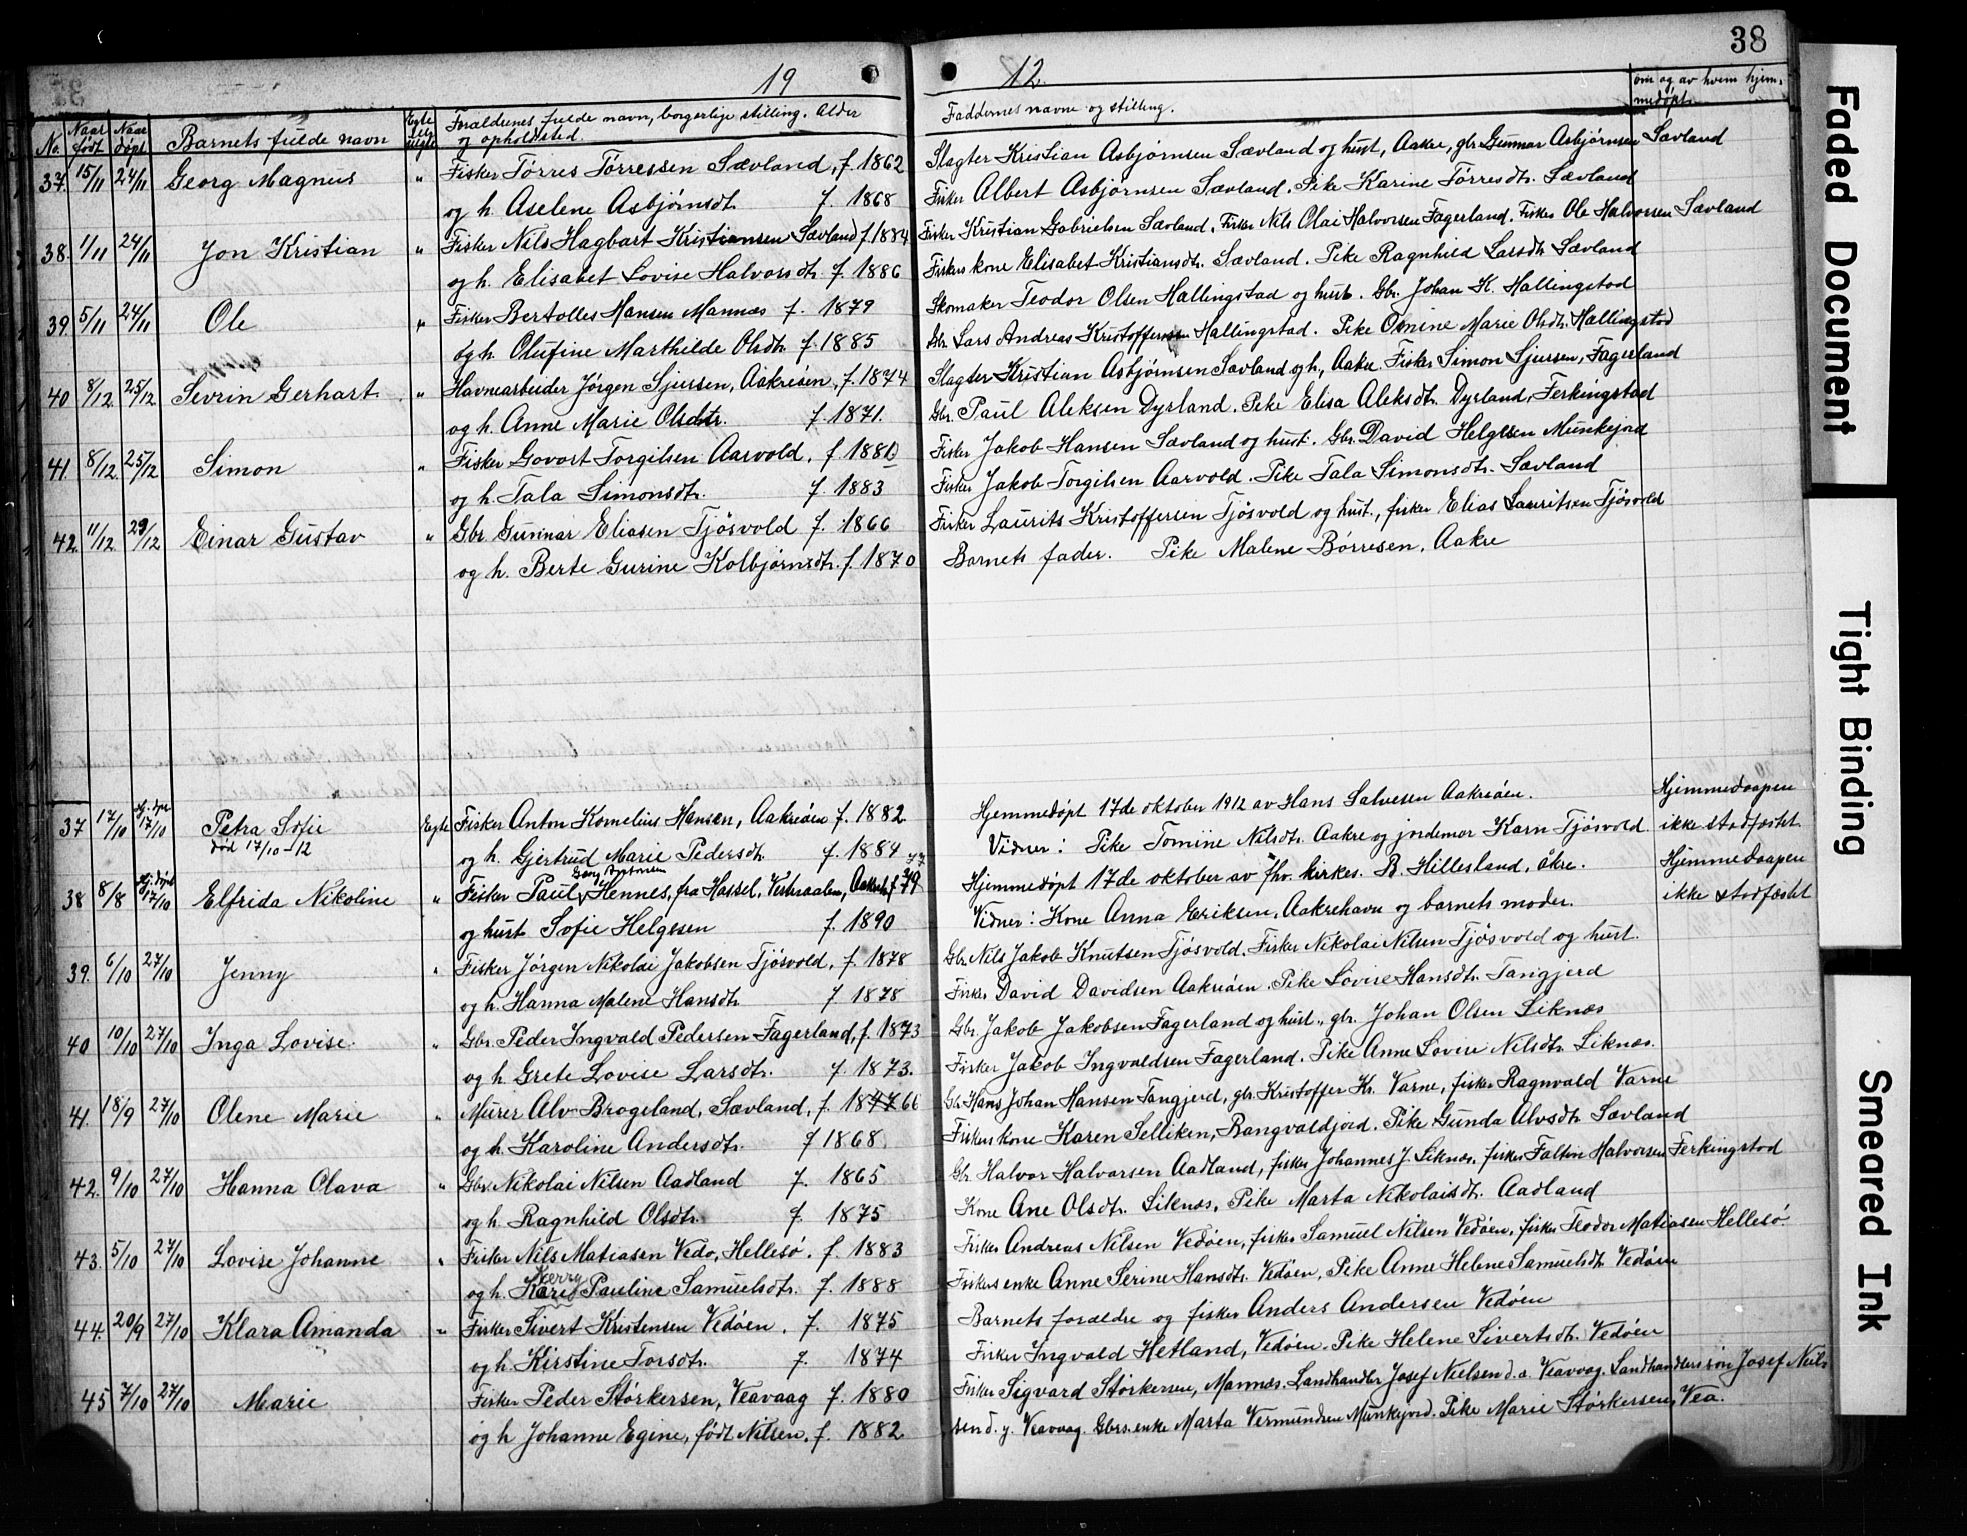 38
19 12.
No. Naar født Naar døpt Barnets fulde navn Egte eller uegte Forældrenes fulde navn, borgerlige stilling. Alder og opholdssted Faddernes navne og stilling. om og av hvem hjemmedøpt
37. 15/11 24/11 Georg Magnus " Fisker Tørres Tørressen Sævland, f. 1862 Slagter Kristian Asbjørnsen Sævland og hust, Aakre, gbr Gunnar Asbjørnsen Sævland
og h. Aselene Asbjørnsdt. f. 1868 Fisker Albert Asbjørnsen Sævland. Pike Karine Tørresdt. Sævland
38. 1/11 24/11 Jon Kristian " Fisker Nils Hagbart Kristiansen Sævland f. 1884 Fisker Kristian Gabrielsen Sævland, Fisker Nils Olai Halvorsen Fagerland. Fisker Ole Halvorsen Sævland
og h. Elisabet Lovise Halvorsdtr f. 1886 Fiskers kone Elisabet Kristiansdtr. Sævland. Pike Ragnhild Larsdtr Sævland
39. 5/11 24/11 Ole " Fisker Bertolles Hansen Mannæs f. 1879 Skomaker Teodor Olsen Hallingstad og hust. Gbr. Johan K. Hallingstad
og h. Olufine Marthilde Olsdtr f. 1885 Gbr. Lars Andreas Kristoffersen Hallingstad. Pike Omine Marie Olsdtr. Hallingstad
40 8/12 25/12 Sevrin Gerhart " Havnearbeider Jørgen Sjursen, Aakreøen, f. 1874 Slagter Kristian Asbjørnsen Sævland og h., Aakre. Fisker Simon Sjursen, Fagerland
og h. Anne Marie Olsdtr. f. 1871. Gbr. Paul Aleksen Dyrland. Pike Elisa Aleksdt. Dyrland, Ferkingstad
41. 8/12 25/12 Simon " Fisker Govort Torgilsen Aarvold. f. 1881 Fisker Jakob Hansen Sævland og hust. Gbr. David Helgesen Munkejord
og h. Tala Simonsdtr. f. 1883 Fisker Jakob Torgilsen Aarvold. Pike Tala Simonsdtr. Sævland
42. 11/12 29/12 Einar Gustav " Gbr Gunnar Eliasen Tjøsvold f. 1866 Fisker Laurits Kristoffersen Tjøsvold og hust., fisker Elias Lauritsen Tjøsvold
og h. Berte Gurine Kolbjørnsdtr. f. 1870 Barnets fader. Pike Malene Børresen, Aakre
37 17/10 Hj. døpt 17/10 Petra Sofie Egte Fisker Anton Kornelius Hansen, Aakreøen f. 1882 Hjemmedøpt 17de oktober 1912 av Hans Salvesen Aakreøen. Hjemmedaapen
død 17/10-12 og h. Gjertrud Marie Pedersdt. f. 1884 Vidner: Pike Tomine Nilsdtr. Aakre og jordemor Karn Tjøsvold ikke stadfæstet
38 8/8 Hj. døpt 17/10 Elfrida Nikoline " Fisker Paul Hennes, fra Hassel, Vesteraalen, f 79 Hjemmedøpt 17de oktober av fhv. kirkes. B. Hillesland, Åkre. Hjemmedaapen
og hust Sofie Helgesen f. 1890 Vidner: Kone Anna Eriksen, Aakrehavn og barnets moder. ikke stadfæstet
39. 6/10 27/10 Jenny " Fisker Jørgen Nikolai Jakobsen Tjøsvold, f. 1878 Gbr. Nils Jakob Knutsen Tjøsvold. Fisker Nikolai Nilsen Tjøsvold og hust.
og h. Hanna Malene Hansdtr f 1878 Fisker David Davidsen Aakreøen. Pike Lovise Hansdtr. Tangjerd
40 10/10 27/10 Inga Lovise. " Gbr. Peder Ingvald Pedersen Fagerland, f. 1873 Gbr. Jakob Jakobsen Fagerland og hust., gbr. Johan Olsen Liknæs
og h. Grete Lovise Larsdtr. f. 1873. Fisker Jakob Ingvaldsen Fagerland. Pike Anne Lovise Nilsdtr. Liknæs.
41. 18/9 27/10 Olene Marie " Murer Alv Brogeland, Sævland, f. 1877 66 Gbr Hans Johan Hansen Tangjerd, gbr. Kristoffer Kr. Varne, fisker Ragnvald Varne
og h. Karoline Andersdtr. f 1868 Fiskers kone Karen Selliken, Rangvaldjord. Pike Gunda Alvsdtr. Sævland
42. 9/10 27/10 Hanna Olava " Gbr Nikolai Nilsen Aadland f. 1865 Gbr Halvor Halvorsen Aadland, fisker Johannes J. Liknæs, fisker Faltin Halvorsen Ferkingstad
og h. Ragnhild Olsdtr. f. 1875 Kone Ane Olsdt. Liknæs, Pike Marta Nikolaisdt. Aadland
43. 5/10 27/10 Lovise Johanne " Fisker Nils Matiasen Vedø, Hellesø. f. 1883 Fisker Andreas Nilsen Vedøen, fisker Samuel Nilsen Vedøen, fisker Teodor Matiasen Hellesø
og h. Pauline Samuelsdt. f. 1888 Fiskers enke Anne Serine Hansdt. Vedøen, Pike Anne Helene Samuelsdt Vedøen
44. 20/9 27/10 Klara Amanda " Fisker Sivert Kristensen Vedøen. f. 1875 Barnets forældre og fisker Anders Andersen Vedøen
og h. Kirstine Torsdtr. f. 1874 Fisker Ingvald Hetland, Vedøen. Pike Helene Sivertsdt. Vedøen
45 7/10 27/10 Marie Fisker Peder Størkersen, Veavaag f. 1880 Fisker Sigvard Størkersen, Mannæs. Landhandler Josef Nielsen d. æ. Veavaag. Landhandlers søn Josef Niel-
og h Johanne Egine, født Nilsen. f. 1882 sen d. y. Veavaag. Gbrs. enke Marta Vermundsen Munkejord. Pike Marie Størkersen, Vea.
Faded Document
Tight Binding
Smeared Ink